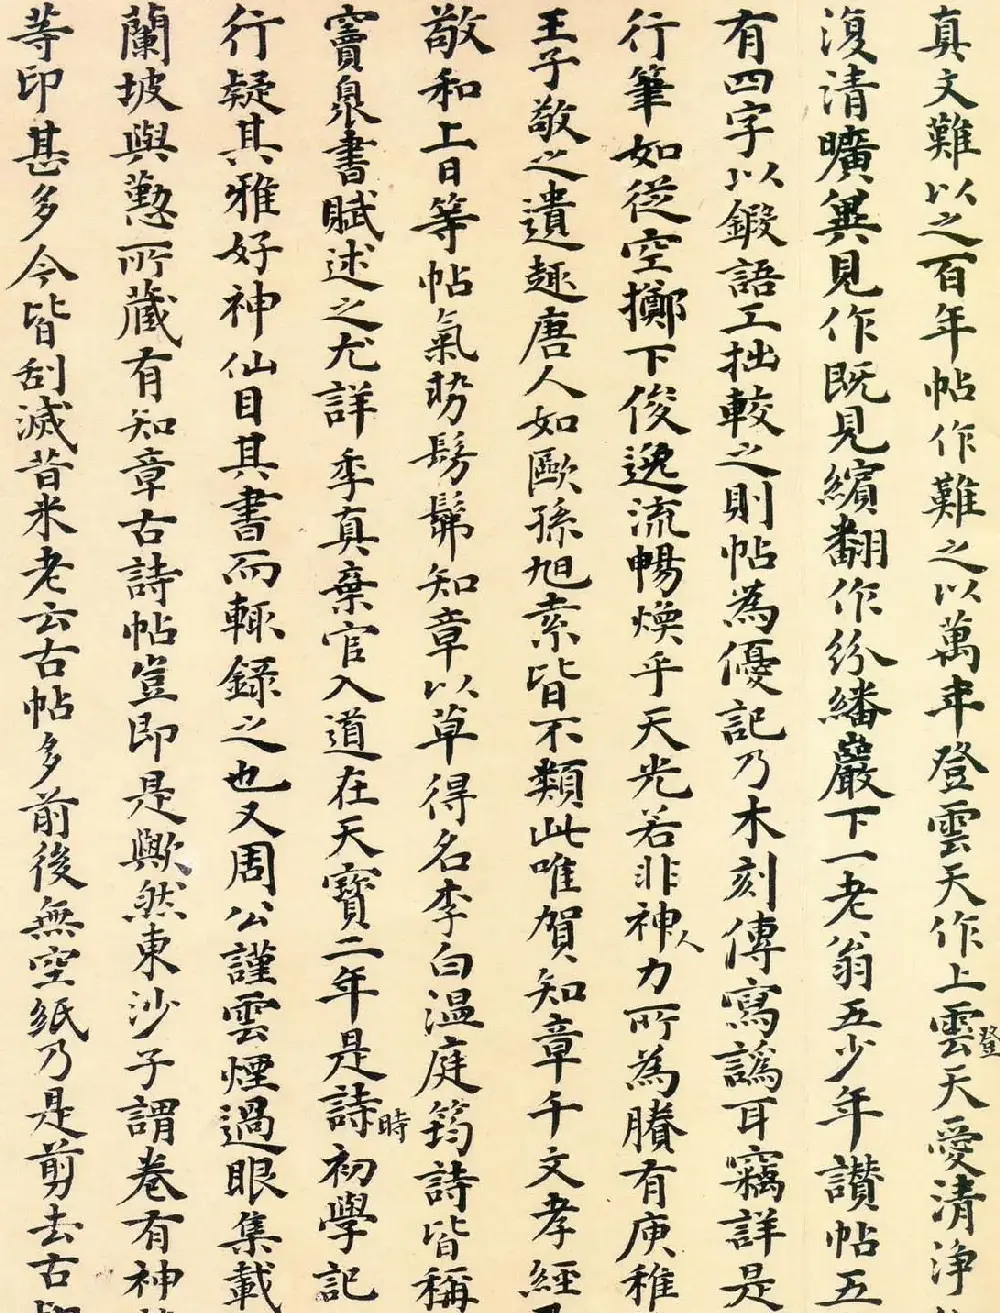 真文難以之百年帖作難之以萬年登雲天作上雲天愛清淨
登
復清曠巽見作既見繽翻作紛繙巖下一老翁五少年讚帖五
有四字以鍛語工拙較之則帖為優記乃木刻傳寫譌耳竊詳是
行筆如從空擲下俊逸流暢煥乎天光若非神力所為賸有庾稚
人
王子敬之遺趣唐人如歐孫旭素皆不類此唯賀知章千文孝經
敬和上日等帖氣勢髣髴知章以草得名李白溫庭筠詩皆稱
竇泉書賦述之尤詳季真棄官入道在天寶二年是詩初學記
時
行疑其雅好神仙目其書而輒錄之也又周公謹雲煙過眼集載
蘭坡與懃所藏有知章古詩帖豈即是歟然東沙子謂卷有神
等印甚多今皆刮滅昔米老云古帖多前後無空紙乃是剪去古